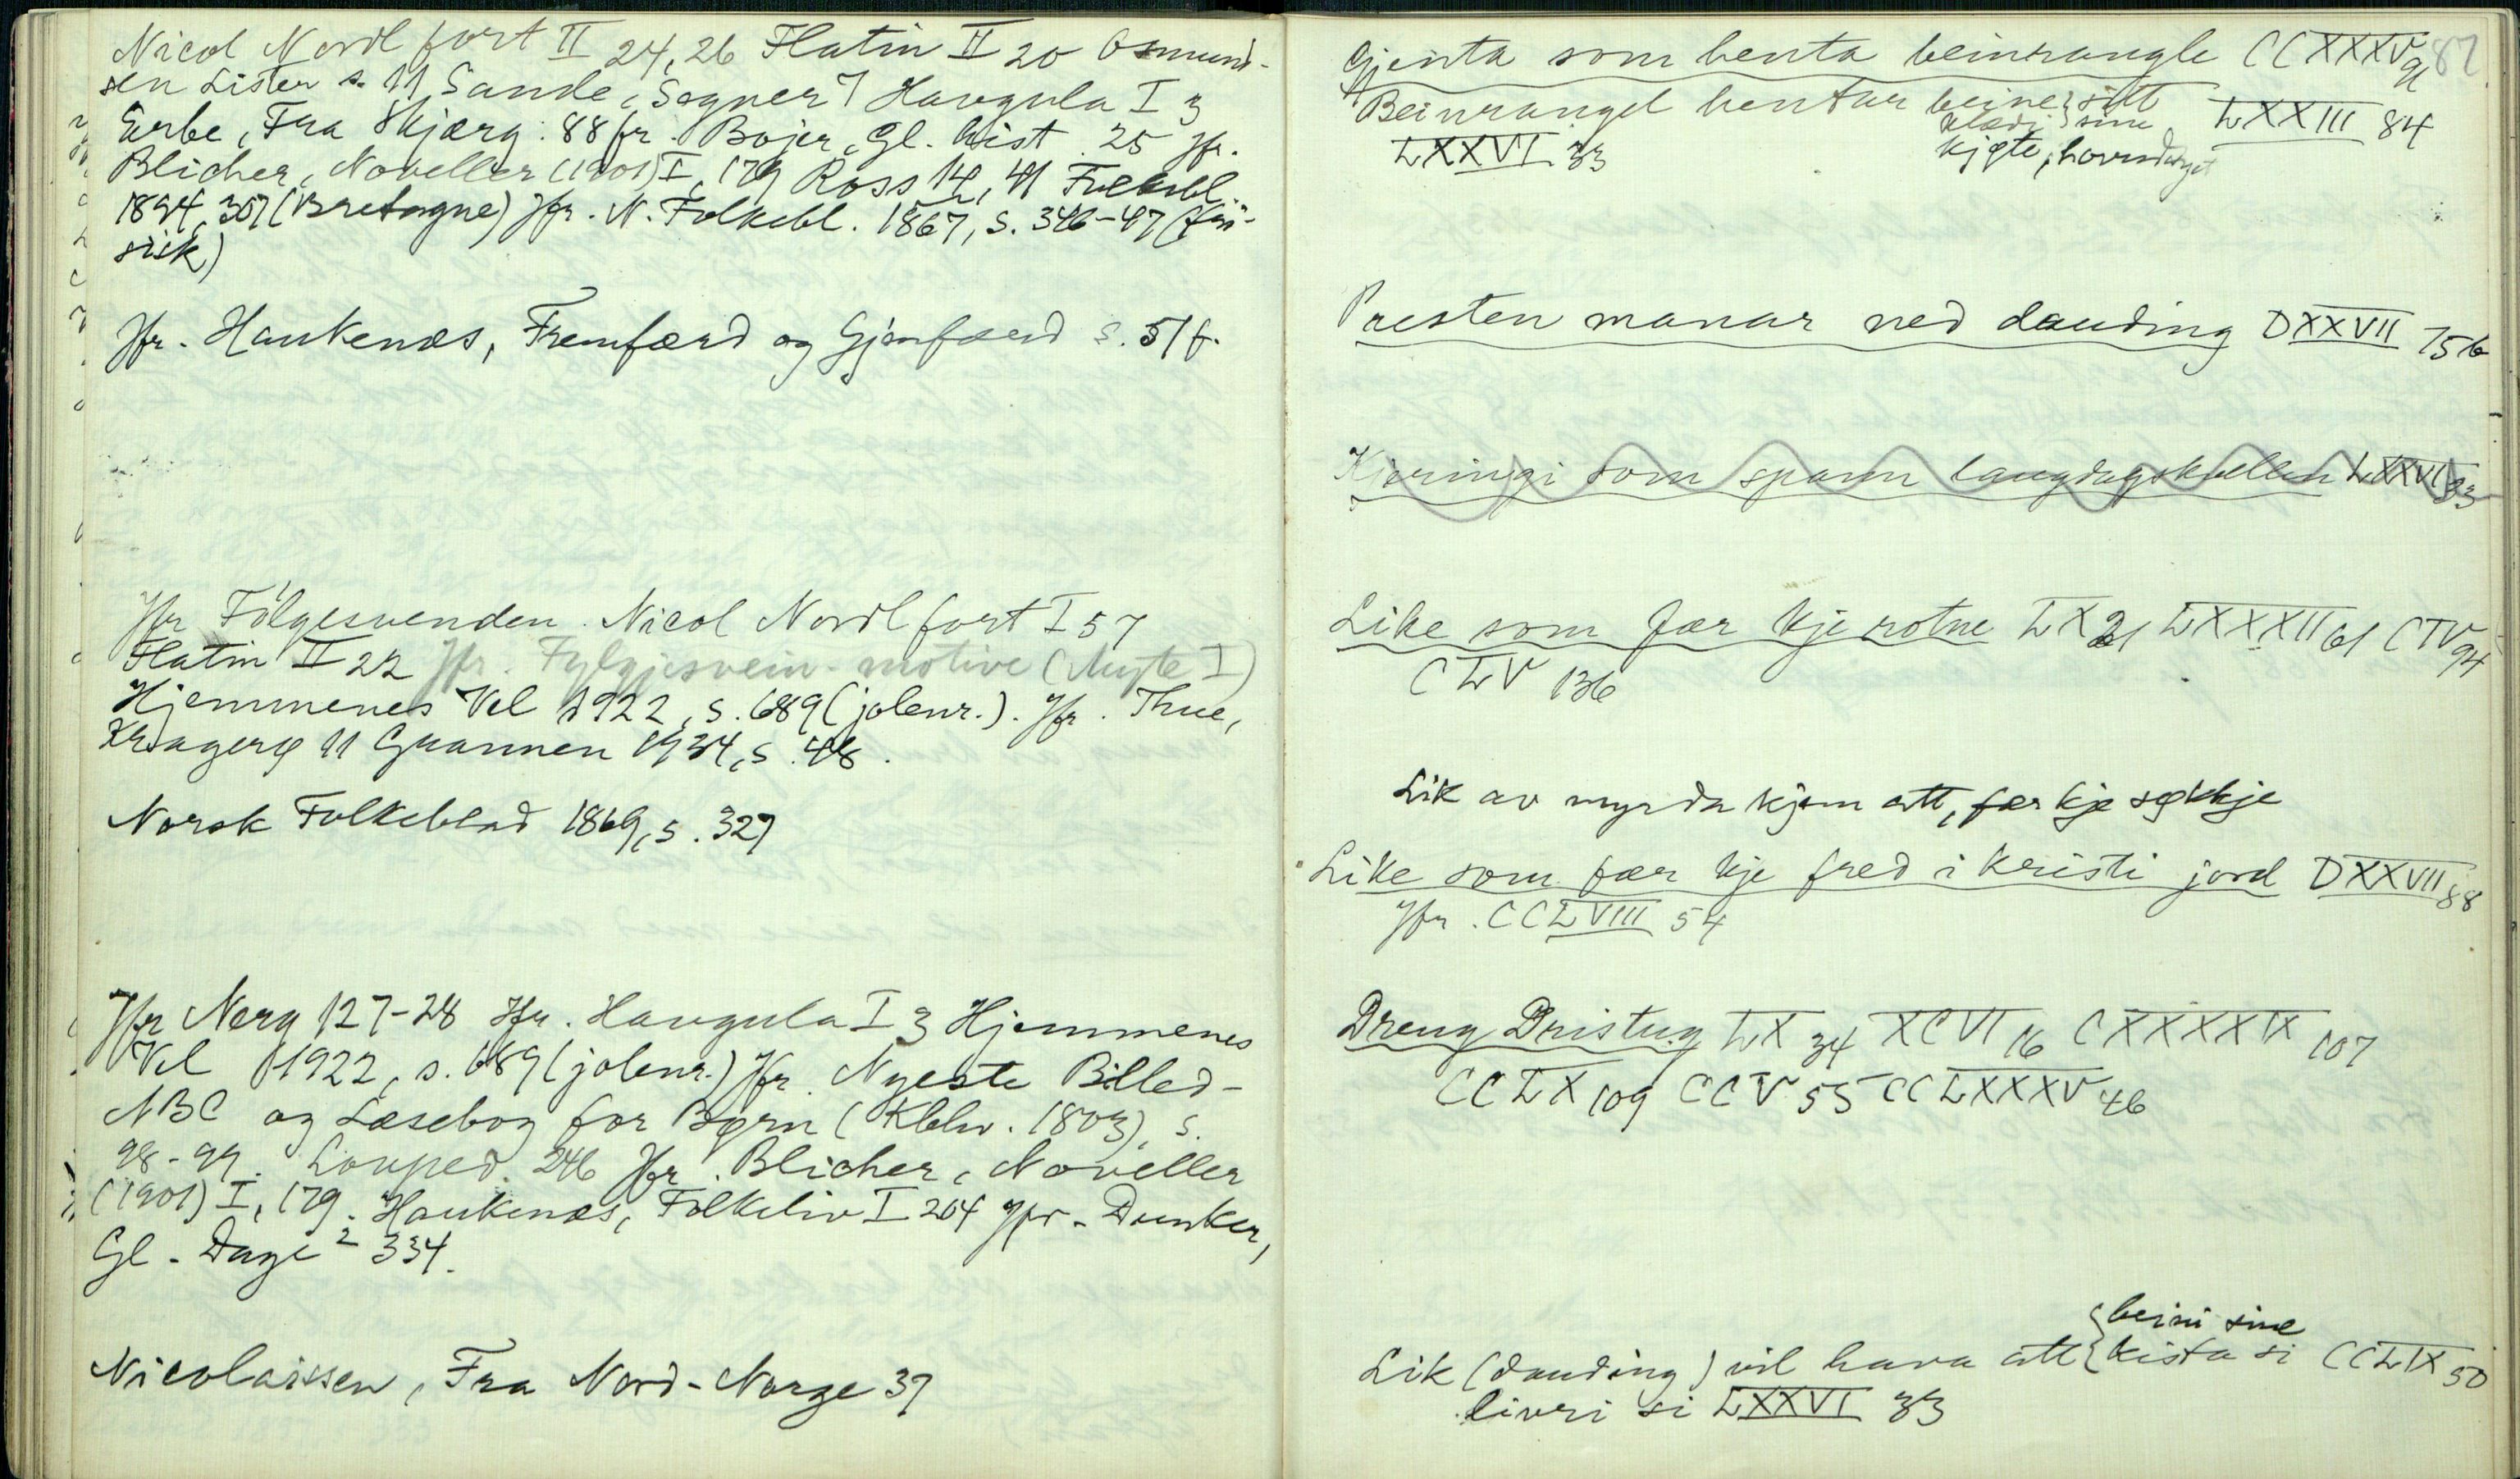 Nicol Nordl fort II 24, 26 Flatin II 20 Osmund-
sen Lister s. 11 Sande, Segner 7 Haugula I 3
Erbe, Fra Skjærg: 88 fr. Bojer, Gl. hist. 25 Jfr.
Blicher, Noveller (1901) I, 179 Ross 14, 41 Folkebl.
1894, 307 (Bretagne) Jfr. N. Folkebl. 1867, s. 346-47
Jfr. Haukenæs, Fremfærd og Gjenfærd s. 51 f.
Jfr Fölgesvenden. Nicol Nordl fort I 57
Flatin II 22 Jfr. Fylgjesvein-motive (Myte I)
Hjemmenes Vel 1922, s. 689 (jolenr.). Jfr. Thue,
Kragerø 11 Grannen 1934, s. 48.
Norsk Folkeblad 1869, s. 327
Jfr Nerg 127-28 Jfr. Haugula I 3 Hjemmenes
Vel 1922, s. 689 (jolenr.) Jfr. Nyeste Billed-
ABC og Læsebog for Børn (Kbhv. 1803), s.
98-99. Louped. 246 Jfr. Blicher, Noveller
(1901) I, 179. Haukenæs, Folkeliv I 204 Jfr. Dunker,
Gl. Dage² 334.
Nicolaissen, Fra Nord-Norge 37
87
Gjenta som henta beinrangle CCXXXV 91
Beinrangel hentar beine sitt
klædi sine LXXIII 84
LXXVI 33 kjøte,
Presten manar ned dauding DXXVII 156
Kjeringi som spann laugdagskvellen LXXVI 33
Like som fær kje rotne LX 21 LXXXII 61 CIV 94
CLV 136
Lik av myrda kjem att, fær kje søkkje
Like som fær kje fred i kristi jord DXXVII 88
Jfr. CCLVIII 54
Dreng Dristug LX 34 XCVI 16 CXXXXIX 107
CCLX 109 CCV 55 CCLXXXV 46
beini sine
Lik (dauding) vil hava att kista si CCLIX 50
livri si LXXVI 33